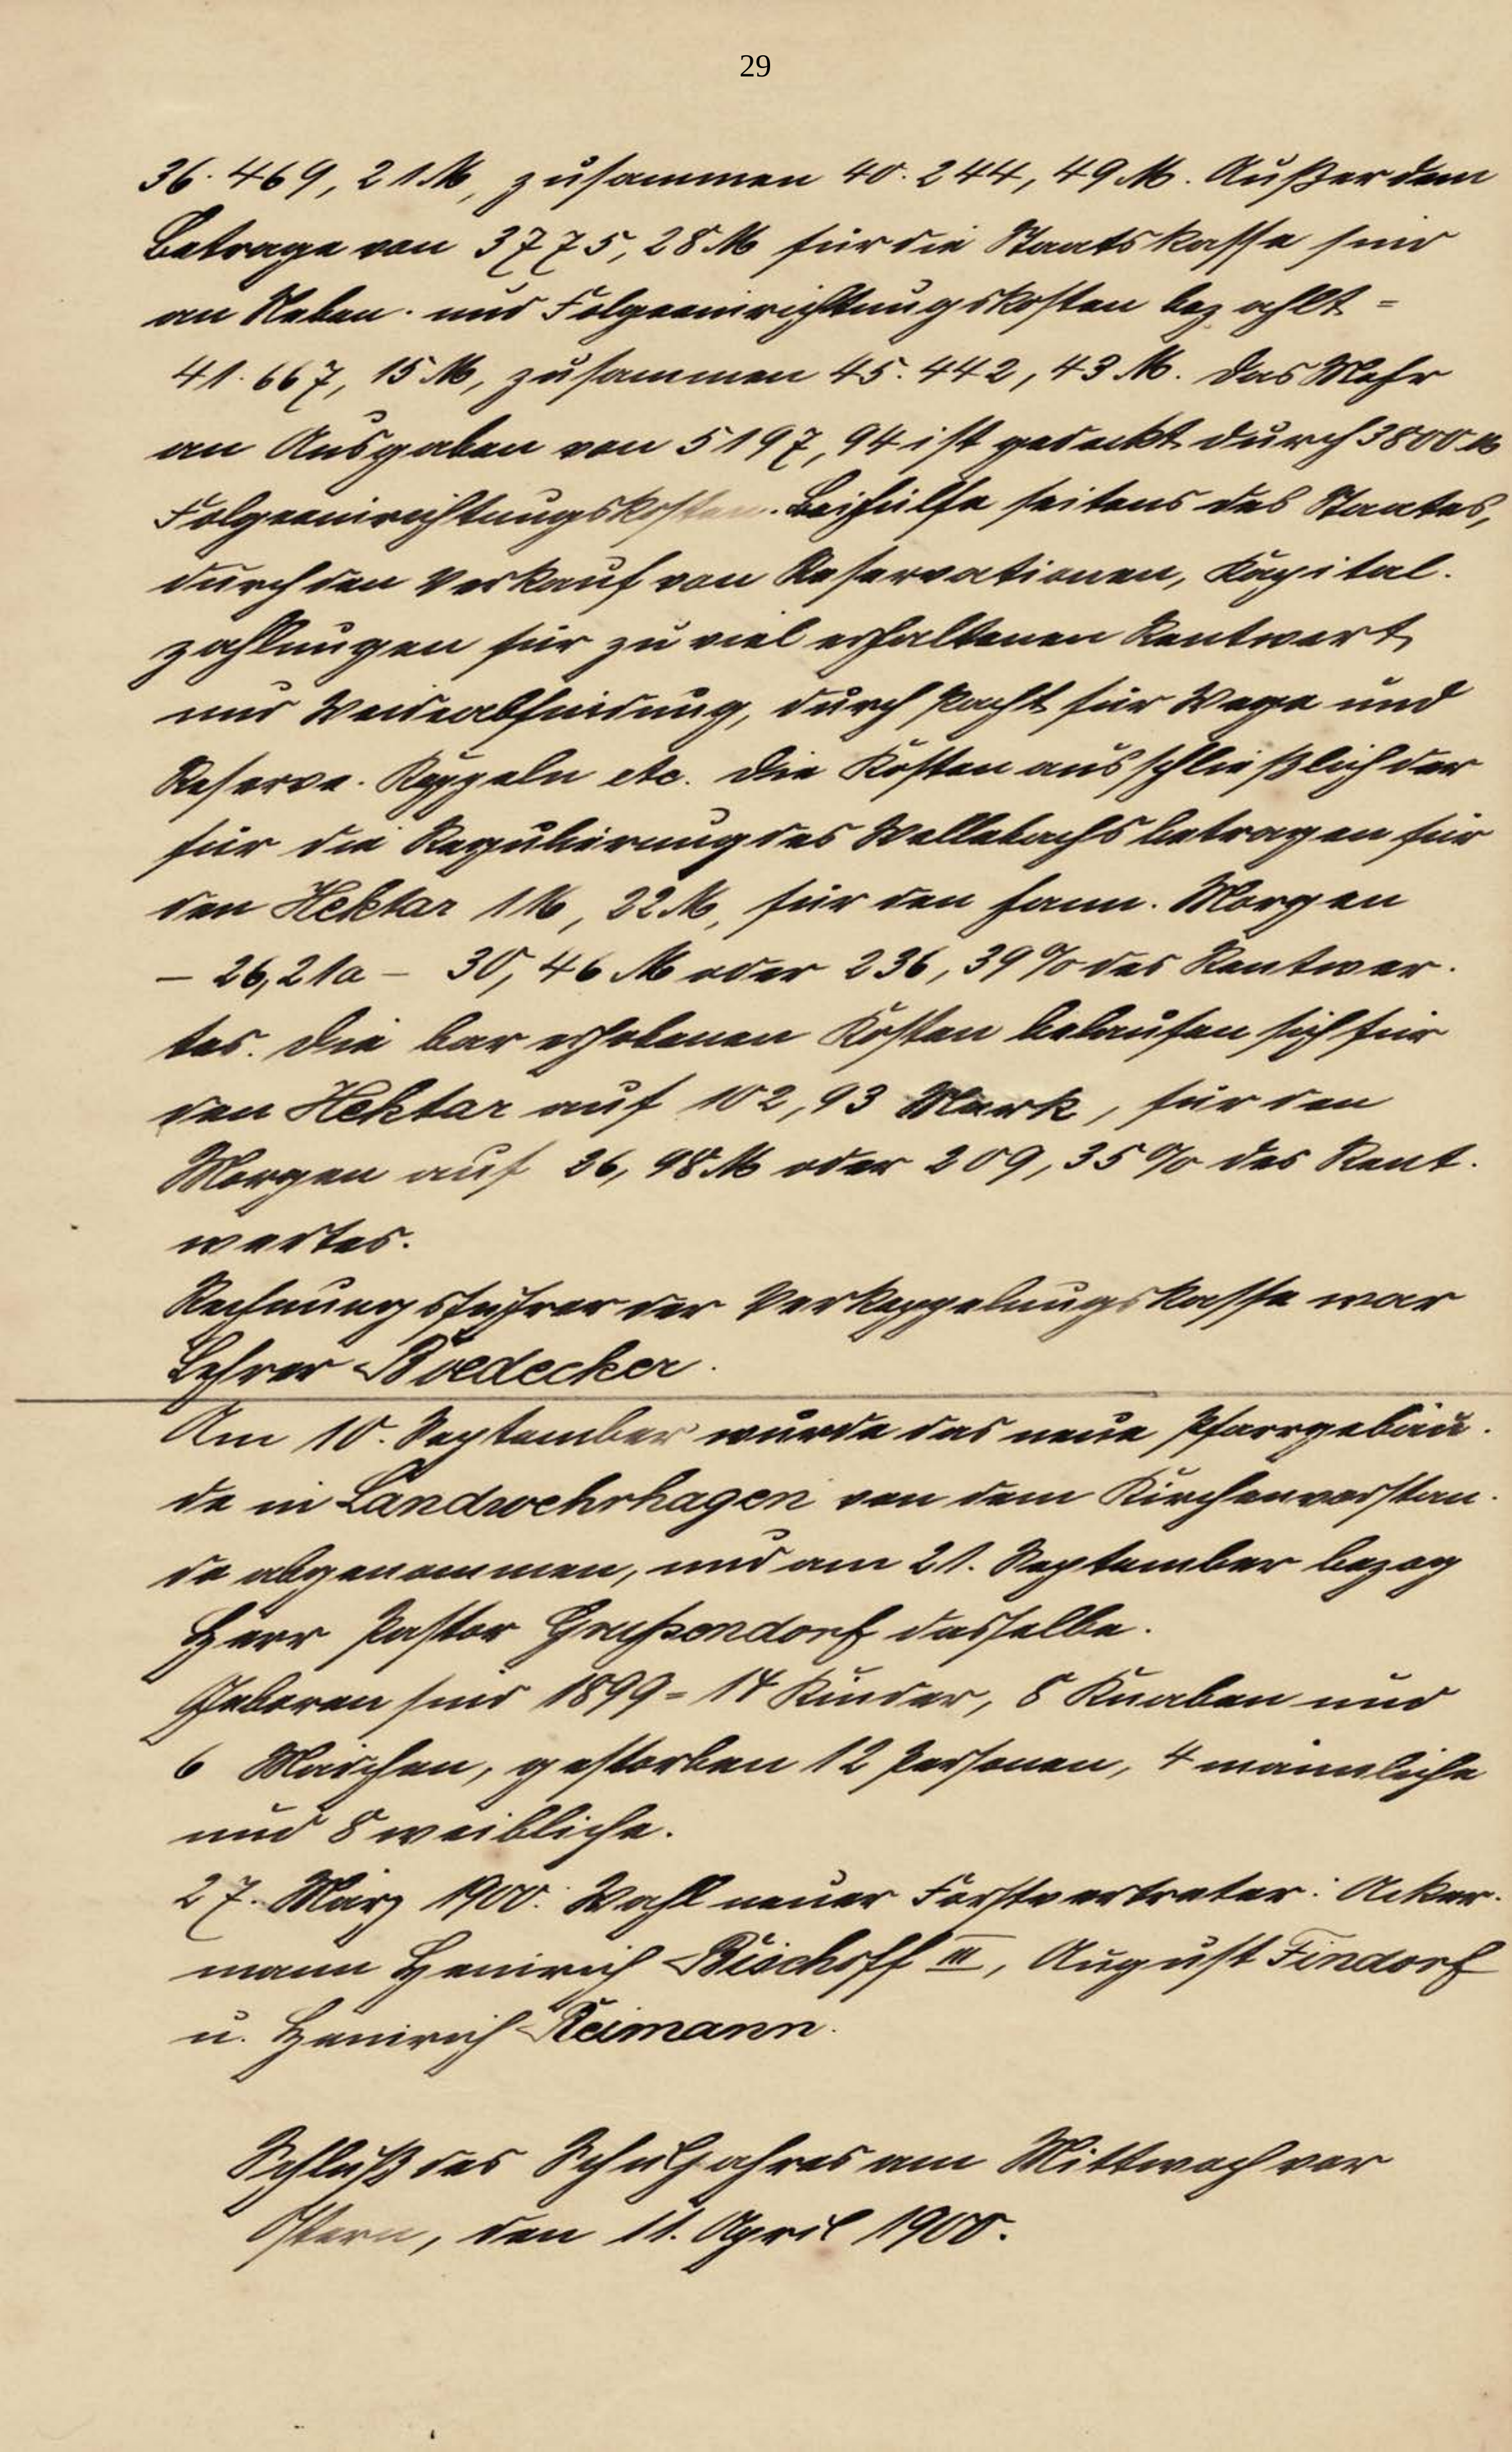 29
36.469,21 M, zusammen 40.244,49 M. Außer dem
Betrage von 3775,28 M für die Staatskasse sind
an Neben- und Folgeeinrichtungskosten bezahlt =
41.667,15 M, zusammen 45.442,43 M. Das Mehr
an Ausgaben von 5197,94 ist gedeckt durch 3800 M
Folgeeinrichtungskosten-Beihülfe seitens des Staates,
durch den Verkauf von Reservationen, Kapital-
zahlungen für zu viel erhaltenen Rentwert
und Weideabfindung, durch Pacht für Wege und
Reserve-Koppeln etc. Die Kosten ausschließlich der
für die Regulierung des Wellebachs betragen für
den Hektar 116,22 M, für den hann. Morgen
– 26,21a – 30,46 M oder 236,39 % des Rentwer-
tes. Die bar erhobenen Kosten belaufen sich für
den Hektar auf 102,93 Mark, für den
Morgen auf 26,98 M oder 209,35 % des Rent-
wertes.
Rechnungsführer der Verkoppelungskasse war
Lehrer Boedecker.
Am 10. September wurde das neue Pfarrgebäu-
de in Landwehrhagen von dem Kirchenvorstan-
de abgenommen, und am 21. September bezog
Herr Pastor Grußendorf dasselbe.
Geboren sind 1899 = 14 Kinder, 8 Knaben und
6 Mädchen, gestorben 12 Personen, 4 männliche
und 8 weibliche.
27. März 1900. Wahl neuer Forstvertreter: Acker-
mann Heinrich Bischoff III, August Findorf
u. Heinrich Reimann.
Schluß des Schuljahres am Mittwoch vor
Ostern, den 11. April 1900.